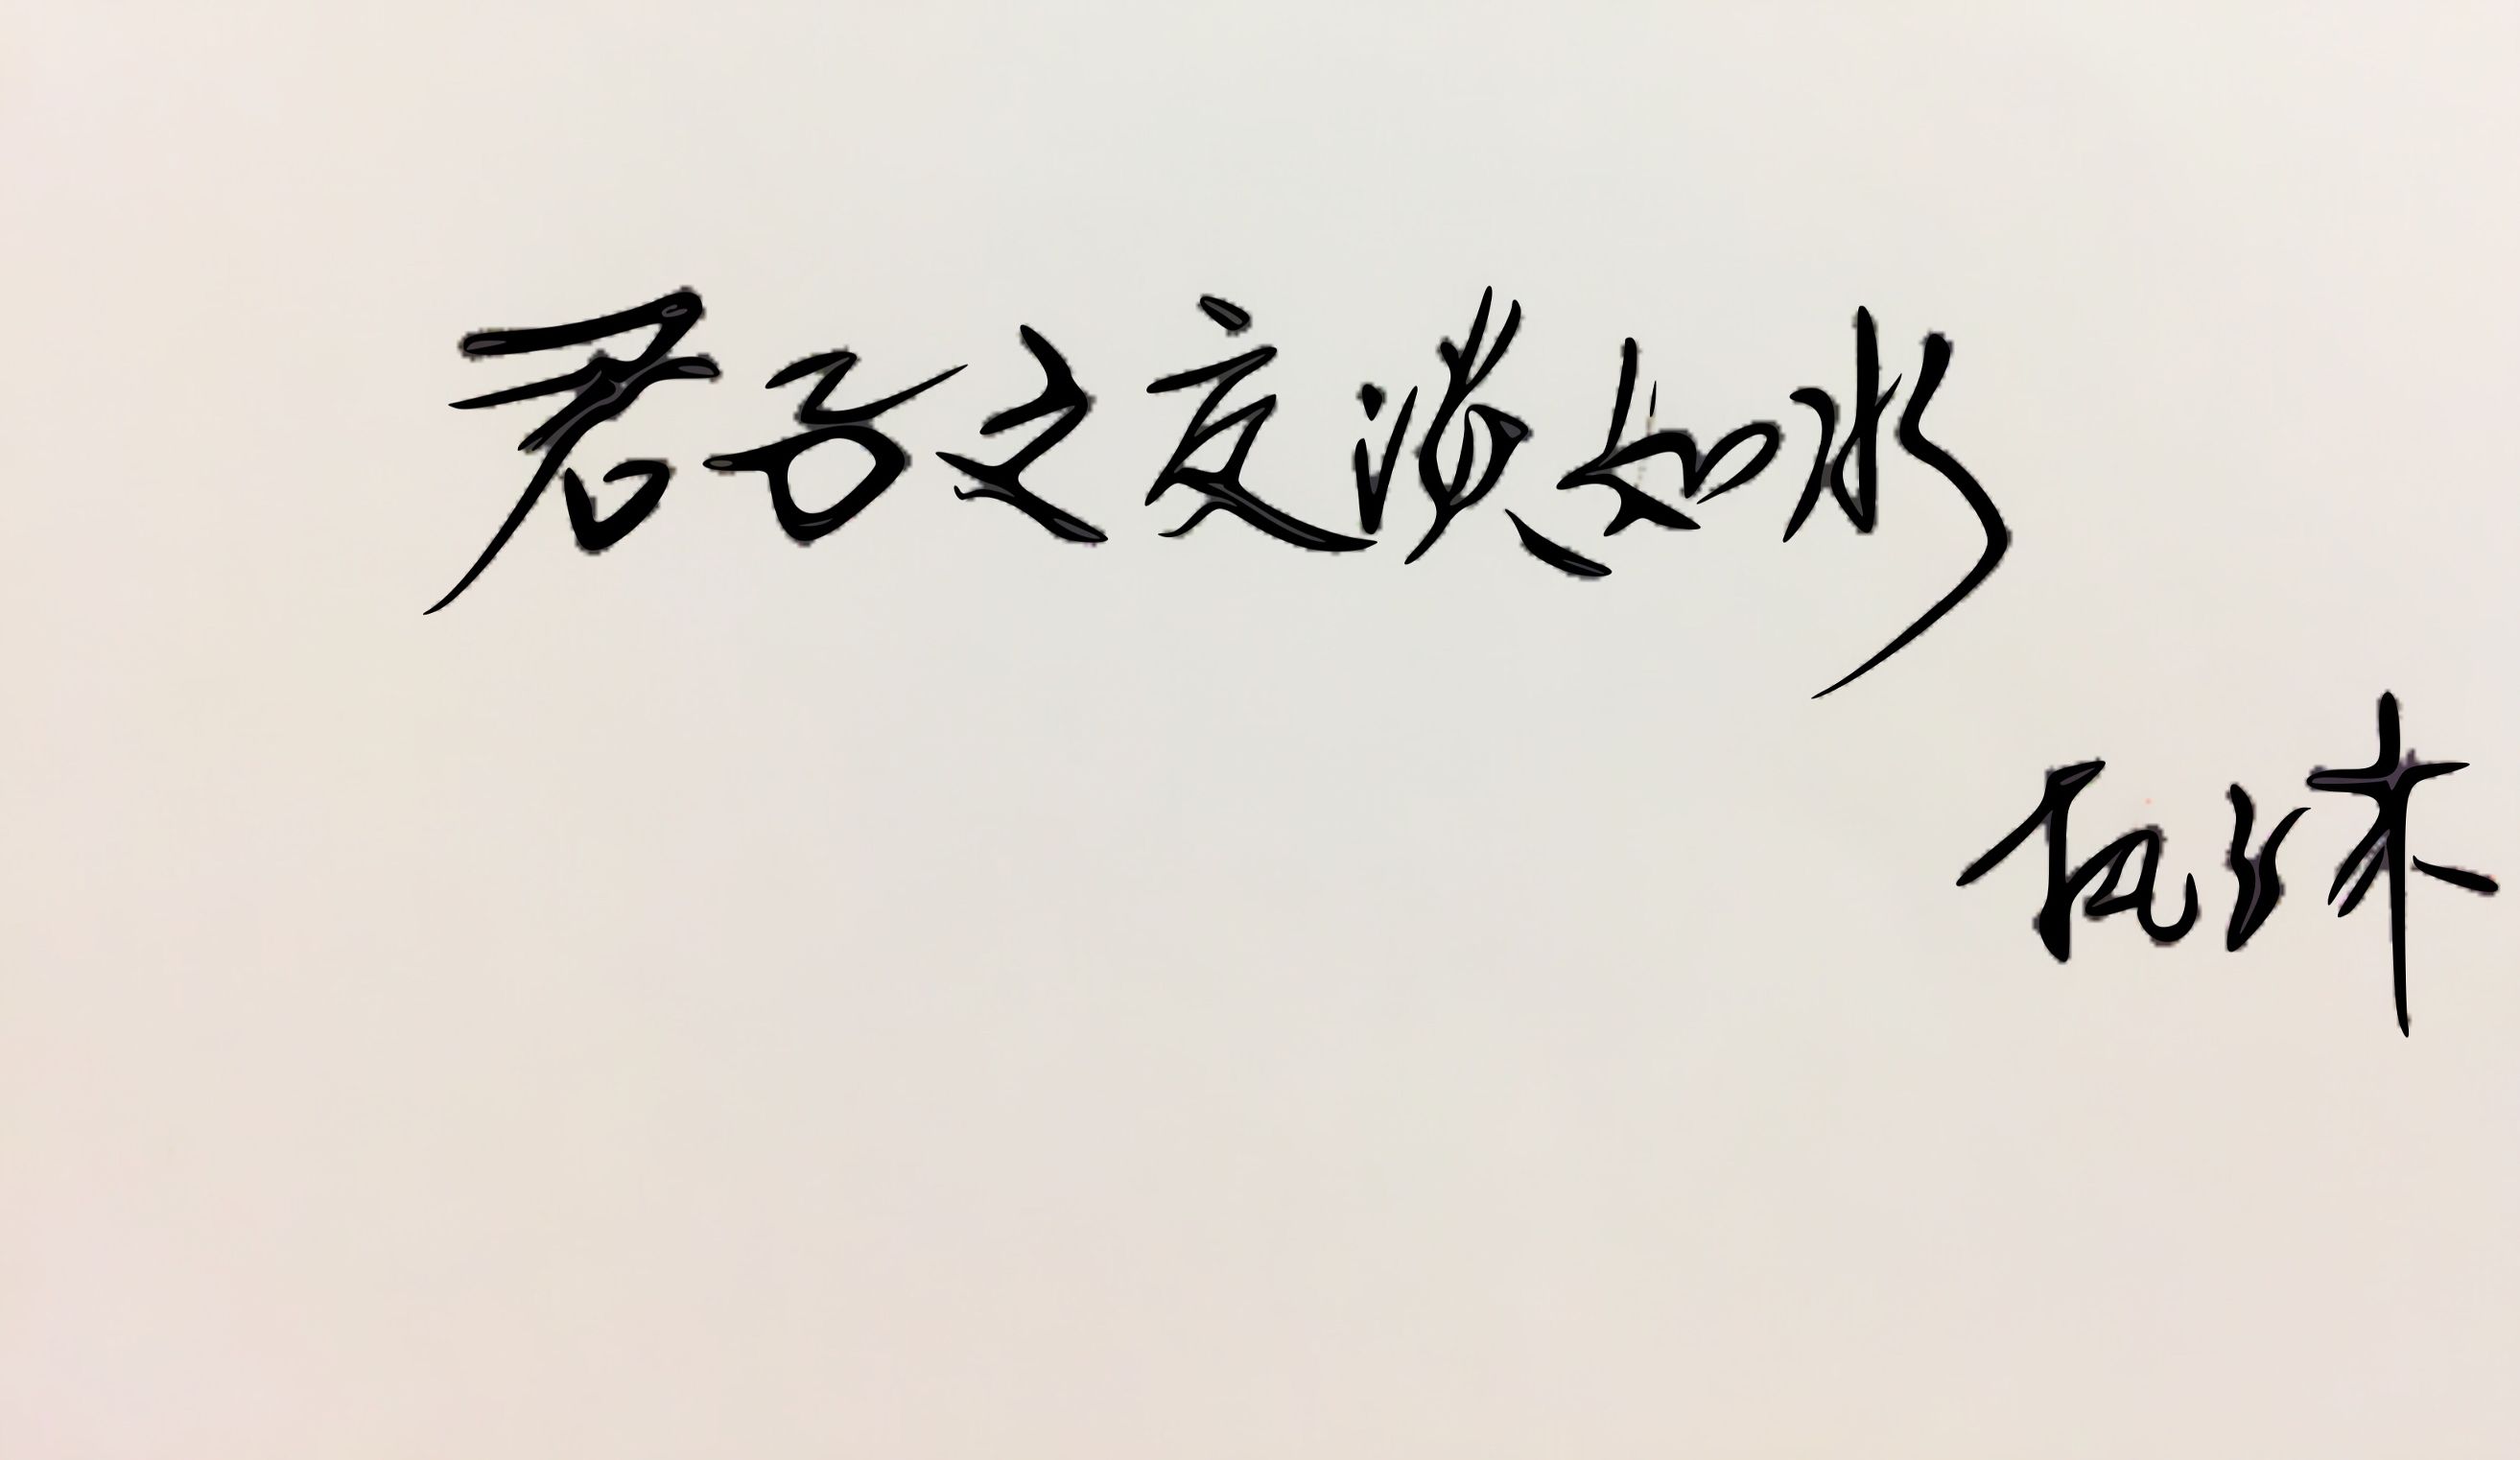 君子之交淡如水